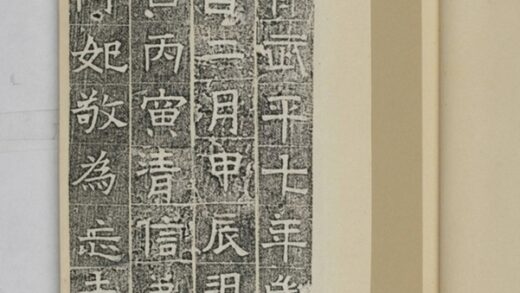 武平七年
二月甲辰朔
丙寅清信
妃敬為忘